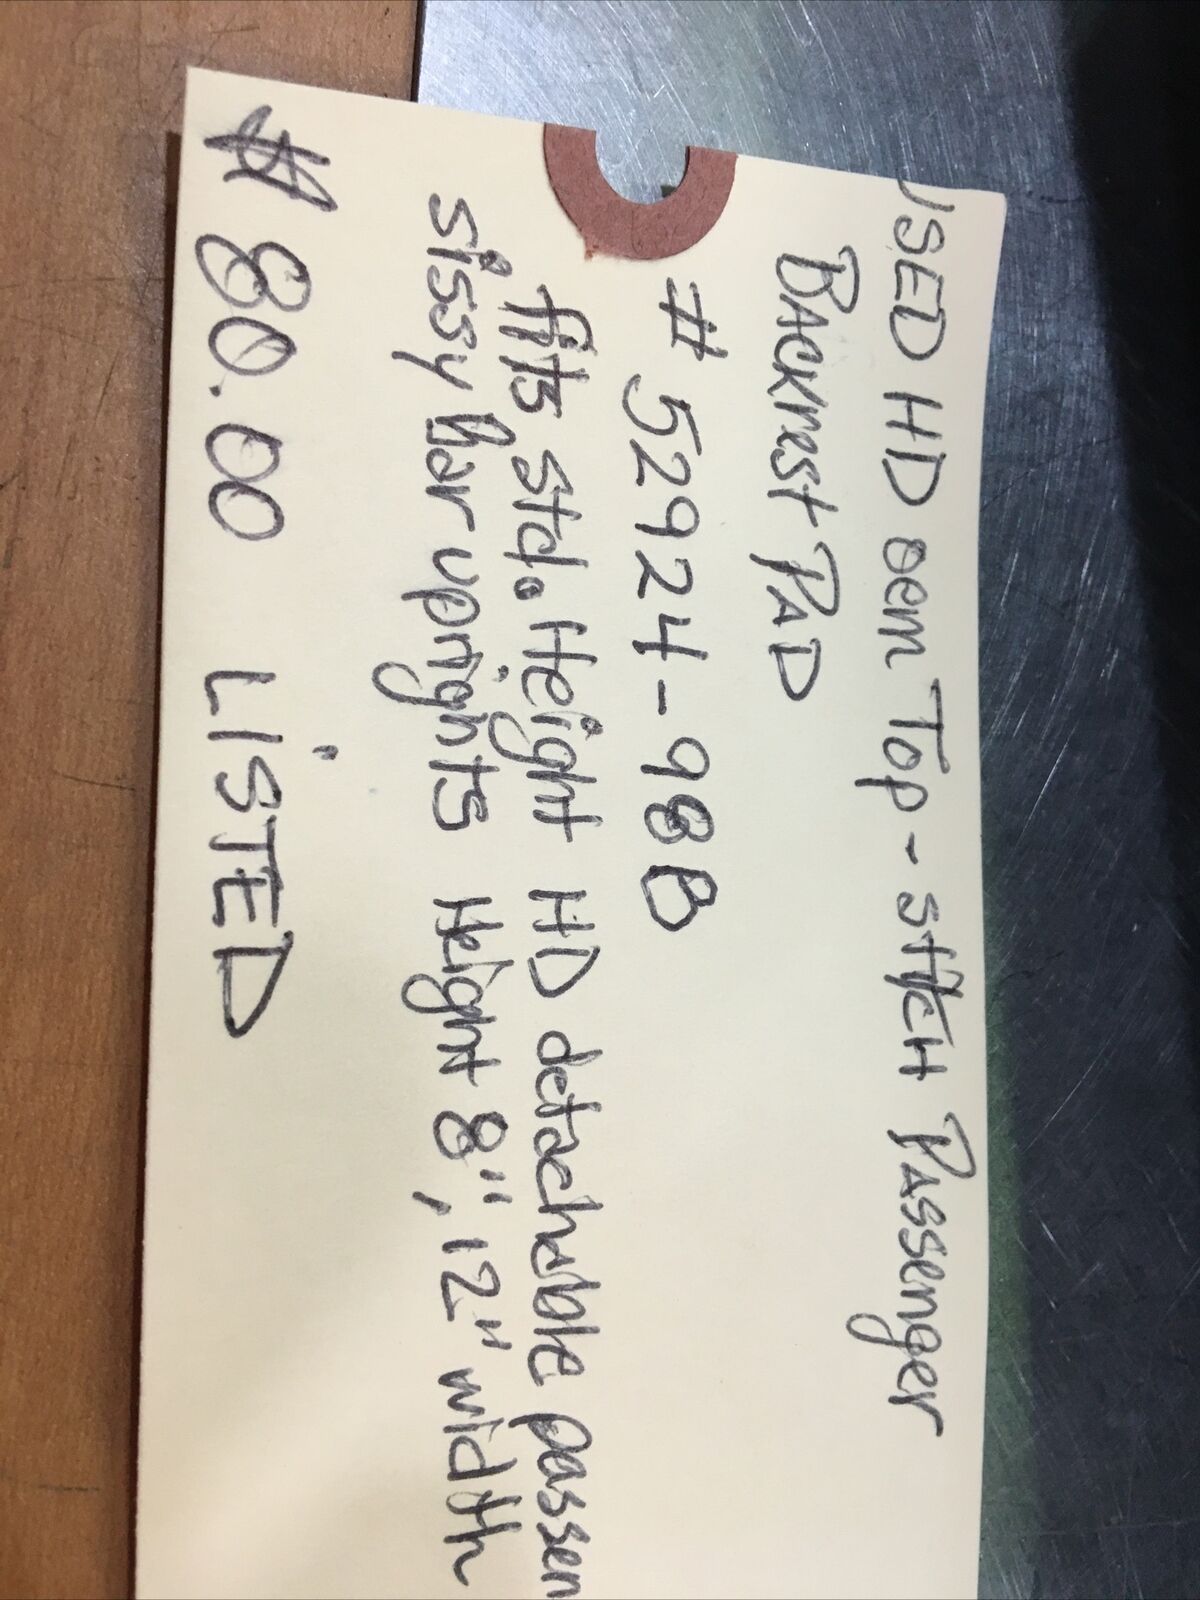 USED HD oem Top-stitCH PAssenger
BAckrest PAD
# 52924-98B
fits std. Height HD detachable passen
sissy bar uprights Height 8", 12" width
$80.00 LiSTED